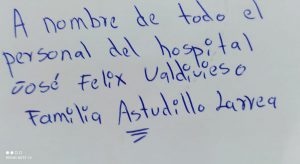 A nombre de todo el
personal del hospital
José Felix Valdivieso
Familia Astudillo Larrea